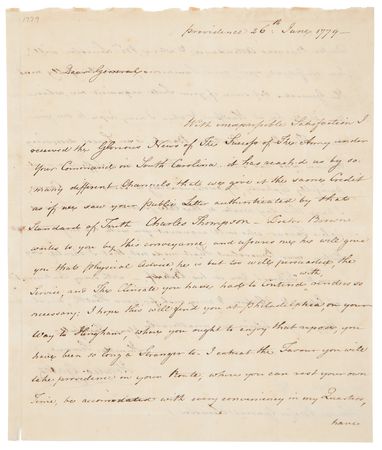 1779
Providence 26th June 1779—
Dear General.
With inexpressible Satisfaction I
received the Glorious News of The Success of The Army under
Your Command in South Carolina. it has reached us by so
many different Channels that we give it the same Credit
as if we saw your Public Letter authenticated by that
Standard of Truth Charles Thompson. Doctor Brown
writes to you by this conveyance, and assures me he will give
you that Physical advice, he is but too well persuaded, the
Service, and The Climate you have had to Contend with, renders so
necessary; I hope this will find you at Philadelphia on your
Way to Hingham, where you ought to enjoy that repose, you
have been so long a Stranger to. I entreat the Favour you will
take providence in your Route, where you can rest your own
Time, be accomodated with every conveniency in my Quarters,
have